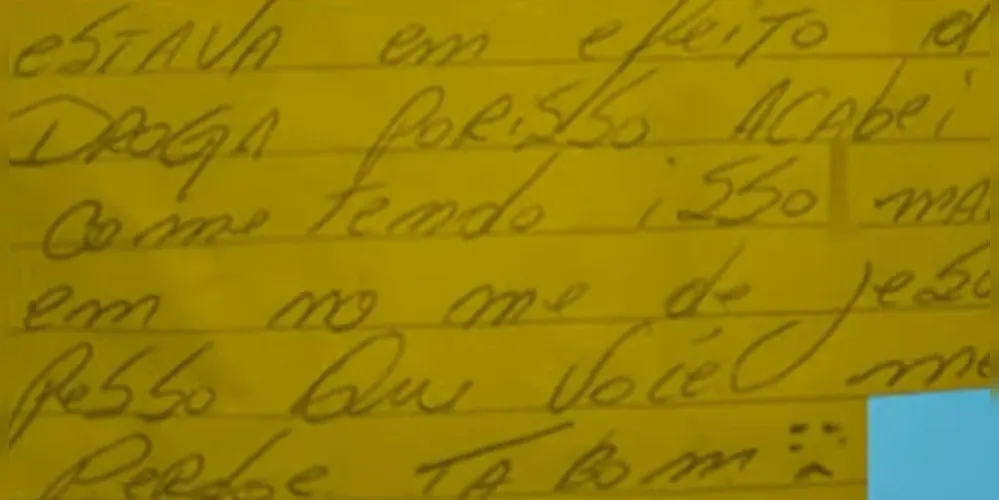 eSTAVA em efeito d
DROGA PORiSSo ACAbei
Come Tendo iSSo MA
em no me de jeso
PeSSo Que Vocie me
Perdoe TA Bom